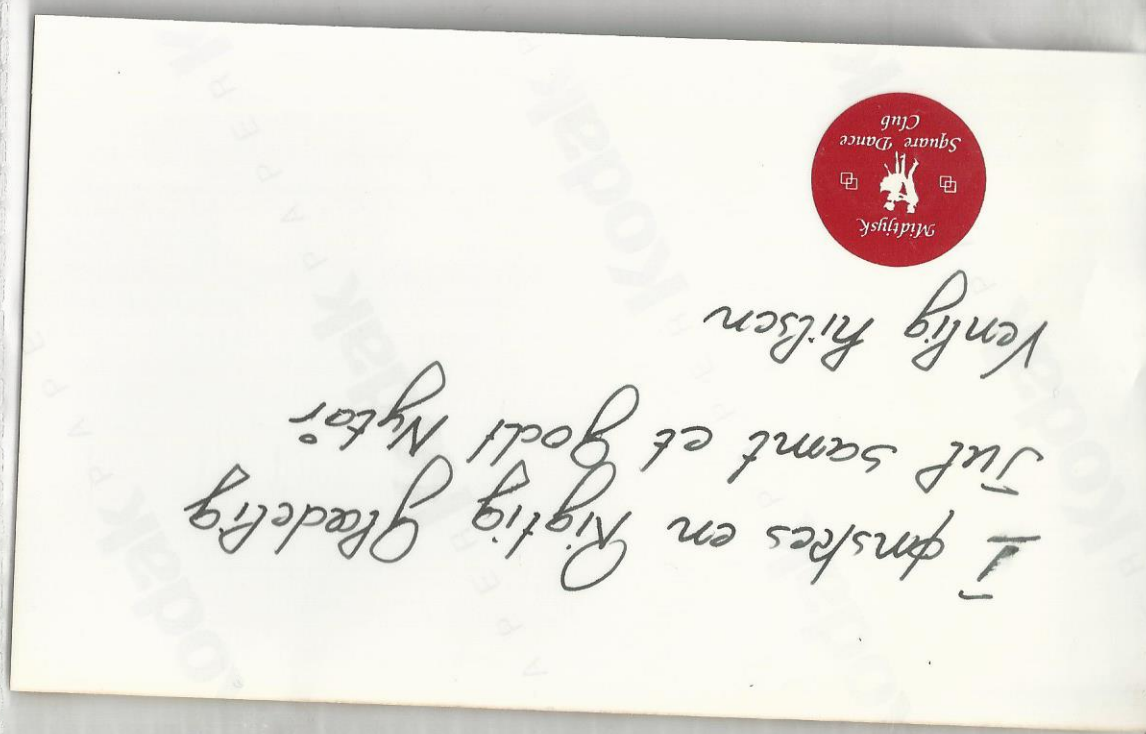 I ønskes en Rigtig Glædelig
Jul samt et godt Nytår
Venlig hilsen
Midtjysk
Square Dance
Club